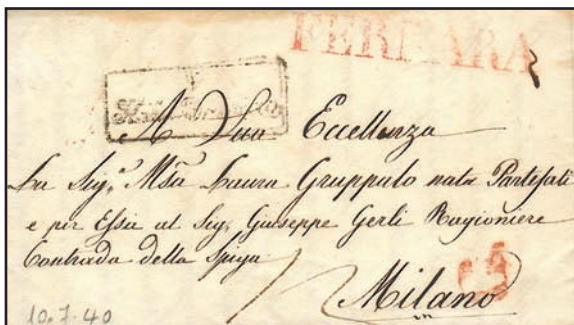 FERRARA
A Sua Eccellenza
La Sig.ª Msã Laura Gruppulo nata Partesati
e per Essa al Sig. Giuseppe Gerli Ragioniere
Contrada della Spiga
Milano
10.7.40